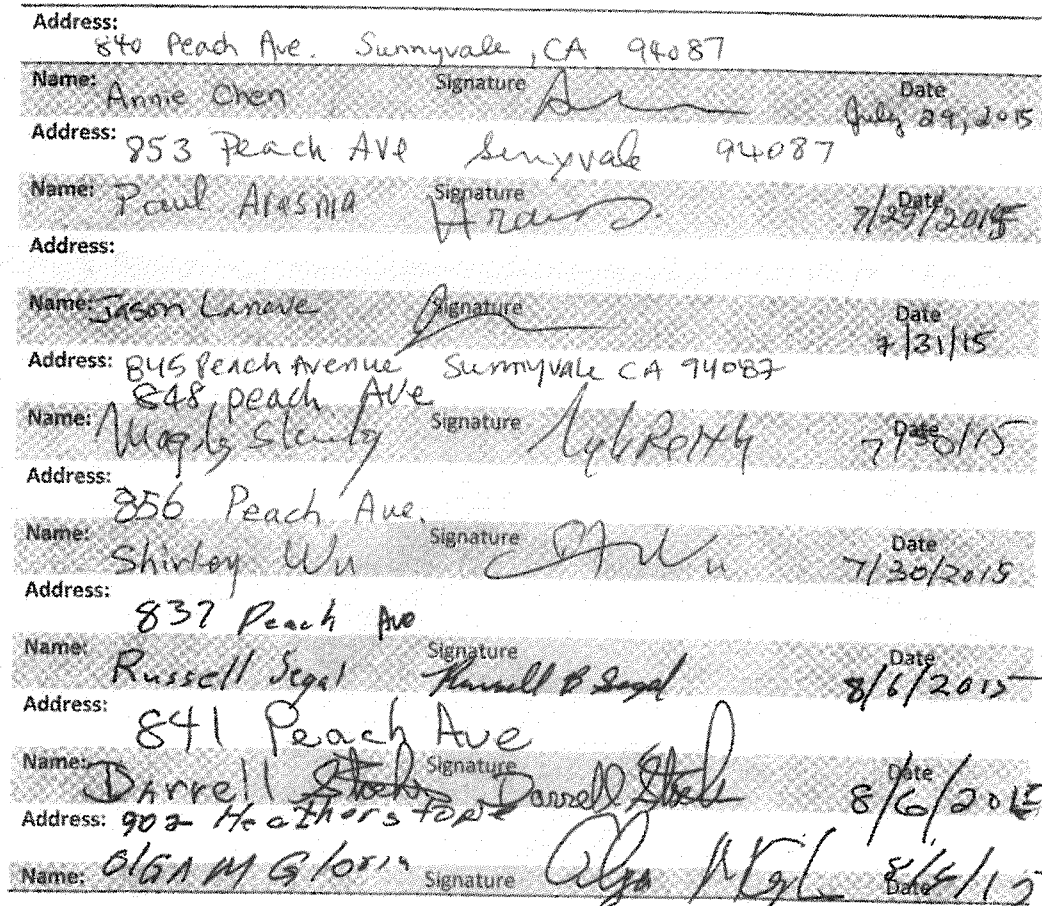 Address:
840 Peach Ave. Sunnyvale, CA 94087
Name: Annie Chen Signature Date July 29, 2015
Address: 853 Peach Ave Sunyvale 94087
Name: Paul Signature Date 7/29/2015
Address:
Name: Jason Lanave Signature Date 7/31/15
Address: 845 Peach Avenue Sunnyvale CA 94087
848 peach Ave
Name: Signature Date 7/30/15
Address:
856 Peach Ave.
Name: Shirley Wu Signature Date 7/30/2015
Address:
837 Peach Ave
Name: Russell Segal Signature Russell B Segal Date 8/6/2015
Address:
841 Peach Ave
Name: Darrell Signature Darrell Date 8/6/2015
Address: 902 Heatherstone
Name: Olga M Gloria Signature Olga Date